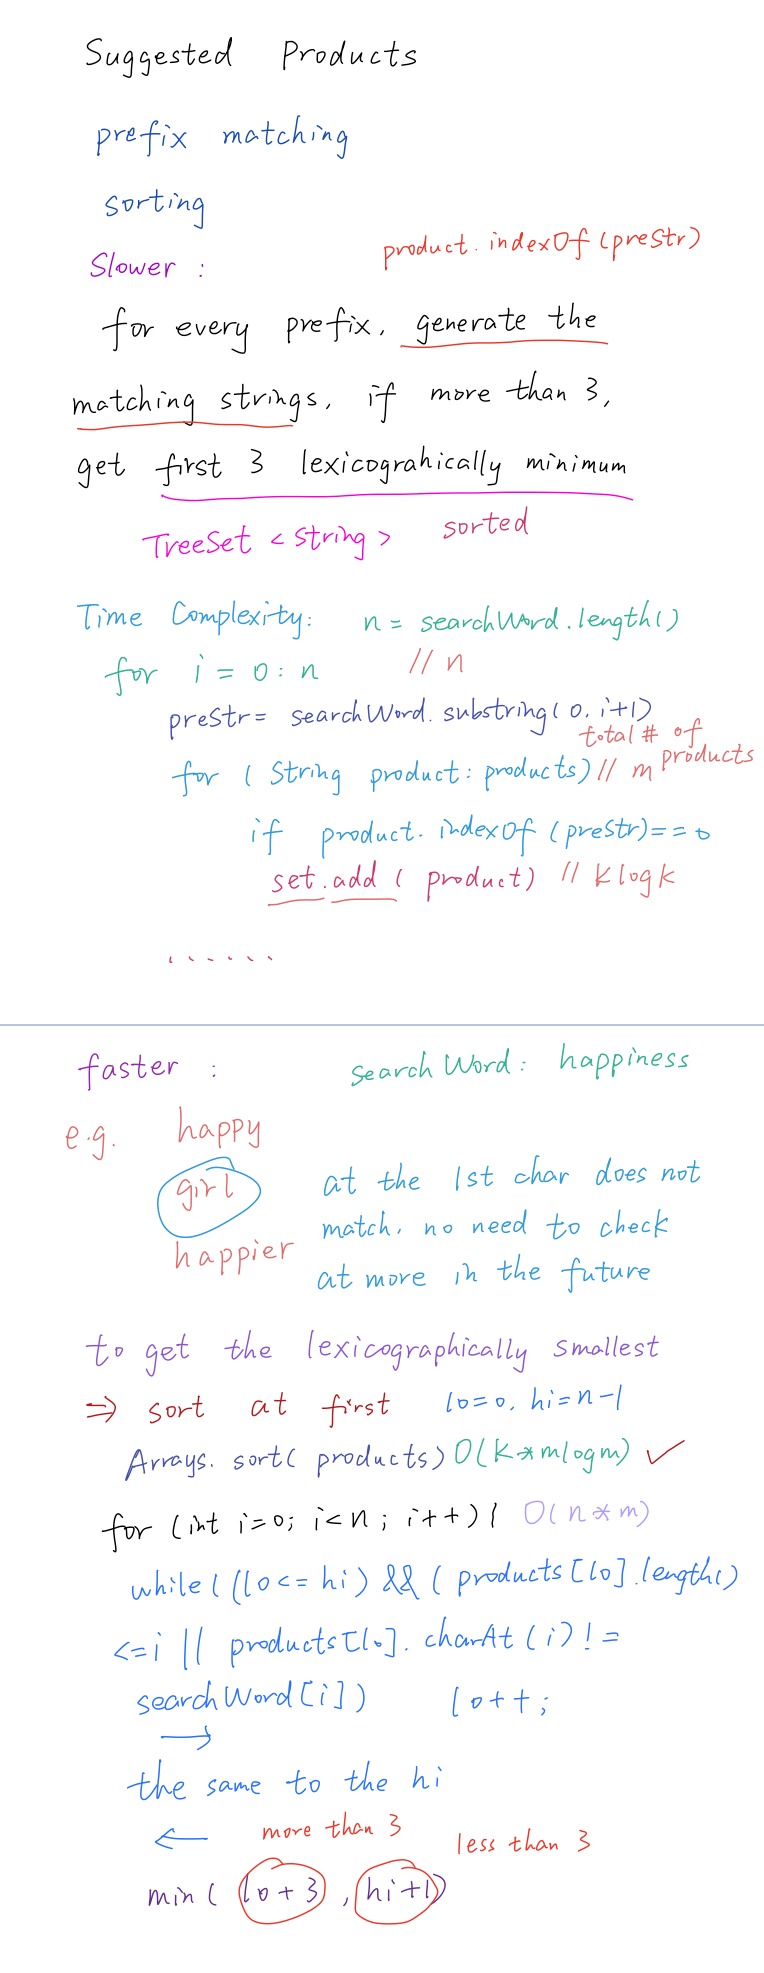 Suggested Products
prefix matching
sorting
product.indexOf(preStr)
Slower :
for every prefix, generate the
matching strings, if more than 3,
get first 3 lexicograhically minimum
TreeSet <String> sorted
Time Complexity: n = searchWord.length()
for i = 0 : n // n
preStr = searchWord.substring(0, i+1)
total # of
products
for (String product : products) // m
if product.indexOf(preStr) == 0
set.add(product) // klogk
......
faster : searchWord: happiness
e.g. happy
girl at the 1st char does not
match, no need to check
happier
at more in the future
to get the lexicographically smallest
⇒ sort at first lo=0, hi=n-1
Arrays.sort(products) O(k*mlogm) ✓
for (int i=0; i<n; i++){ O(n*m)
while((lo<=hi) && (products[lo].length()
<=i || products[lo].charAt(i) !=
searchWord[i]) lo++;
→
the same to the hi
← more than 3 less than 3
min(lo+3, hi+1)